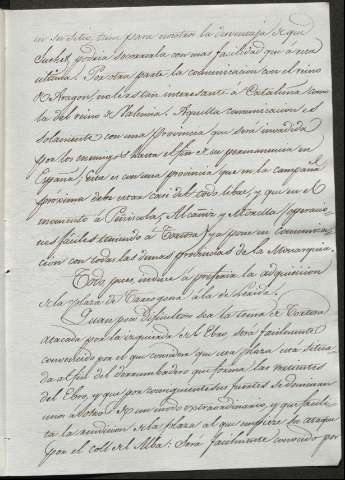 en su sitio, tiene para nosotros la desventaja de que
Suchet, podria socorrerla con mas facilidad que a esta
ultima. Por otra parte la comunicacion con el reino
de Aragon, no le es tan interesante à Cataluña como
la del reino de Valencia. Aquella comunicacion es
solamente con una Provincia que será invadida
por los enemigos hasta el fin de su permanencia en
España; Esta es con una provincia que en la campaña
próxima debe estar casi del todo libre, y que en el
momento à Peñiscola, Alcañiz y Morella (operacio-
nes fáciles teniendo à Tortosa) ya pone en comunica-
cion con todas las demas provincias de la Monarquia.
Todo pues induce à preferir la adquisicion
de la plaza de Tarragona à la de Lerida.
Quan poco dificultosa sea la toma de Tortosa
atacada por la izquierda del Ebro, será facilmente
convencido por el que considere que una plaza está situa-
da al fin del derrumbadero que forma las vertientes
del Ebro, y que por consiguiente sus fuertes se dominan
unos à otros de un modo extraordinario, y que facili-
ta la rendicion de la plaza al que empieze su ataque
por el coll del Alba: Será facilmente conocido por